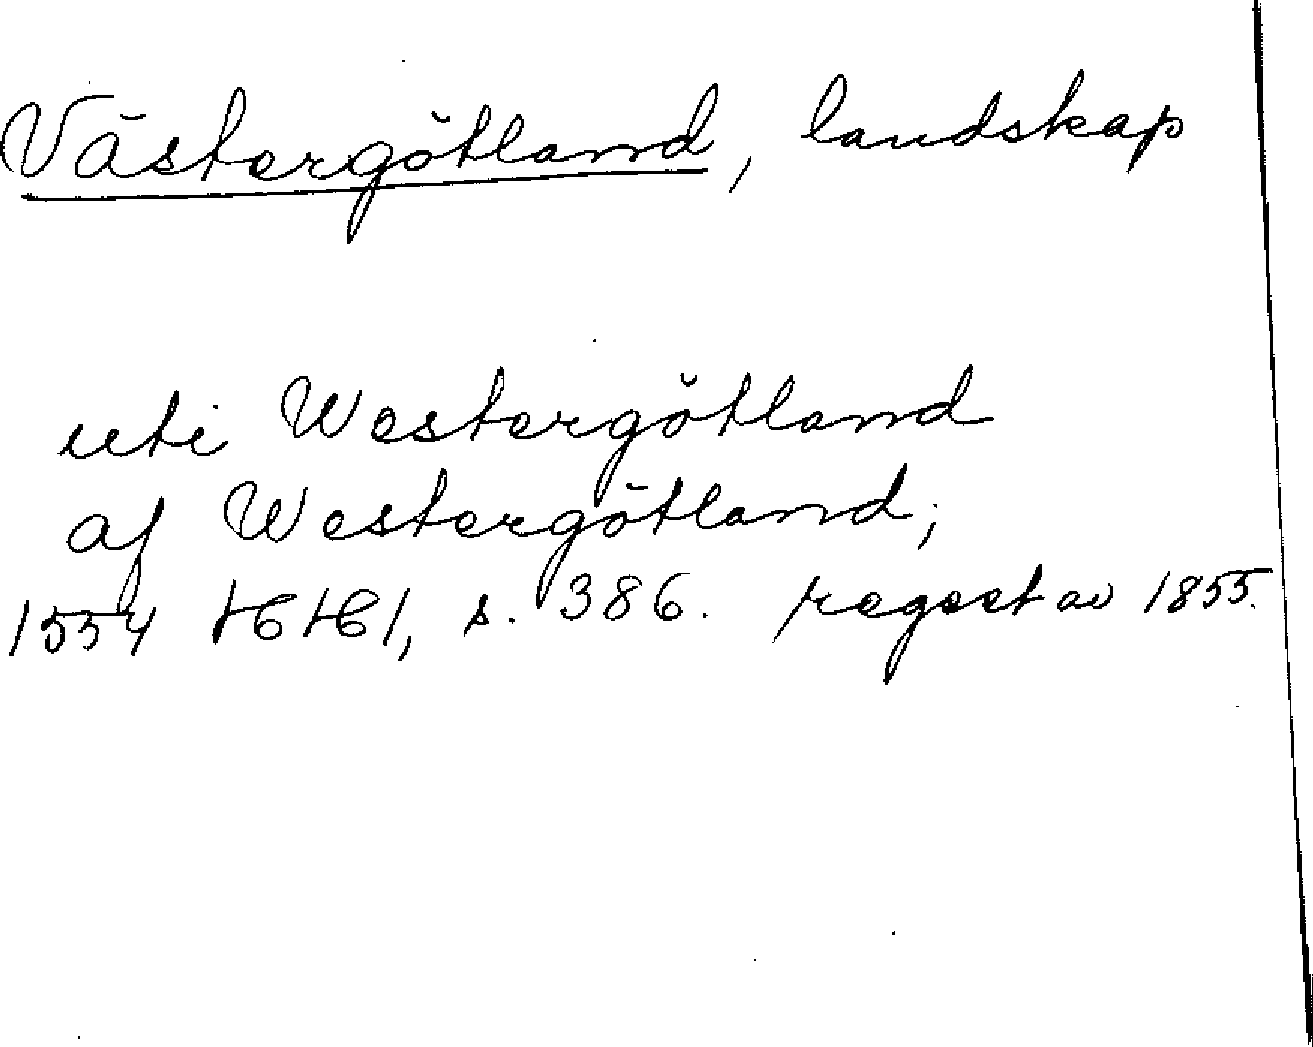 Västergötland, landskap
uti Westergötland
af Westergötland;
1554 HH1, s. 386. regest av 1855.